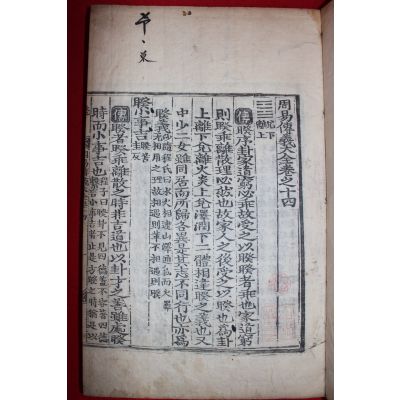 周易傳義大全卷之十四
兌下
離上
傳睽序卦家道窮必乖故受之以睽睽者乖也家道窮
則睽乖離散理必然也故家人之後受之以睽也爲卦
上離下兌離火炎上兌澤潤下二體相違睽之義也又
中少二女雖同居而所歸各異是其志不同行也亦爲
睽義
相遇則革不相遇則睽
睽小事吉睽苦圭反
傳睽者睽乖離散之時非吉道也以卦才之善雖處睽
時而小事吉也